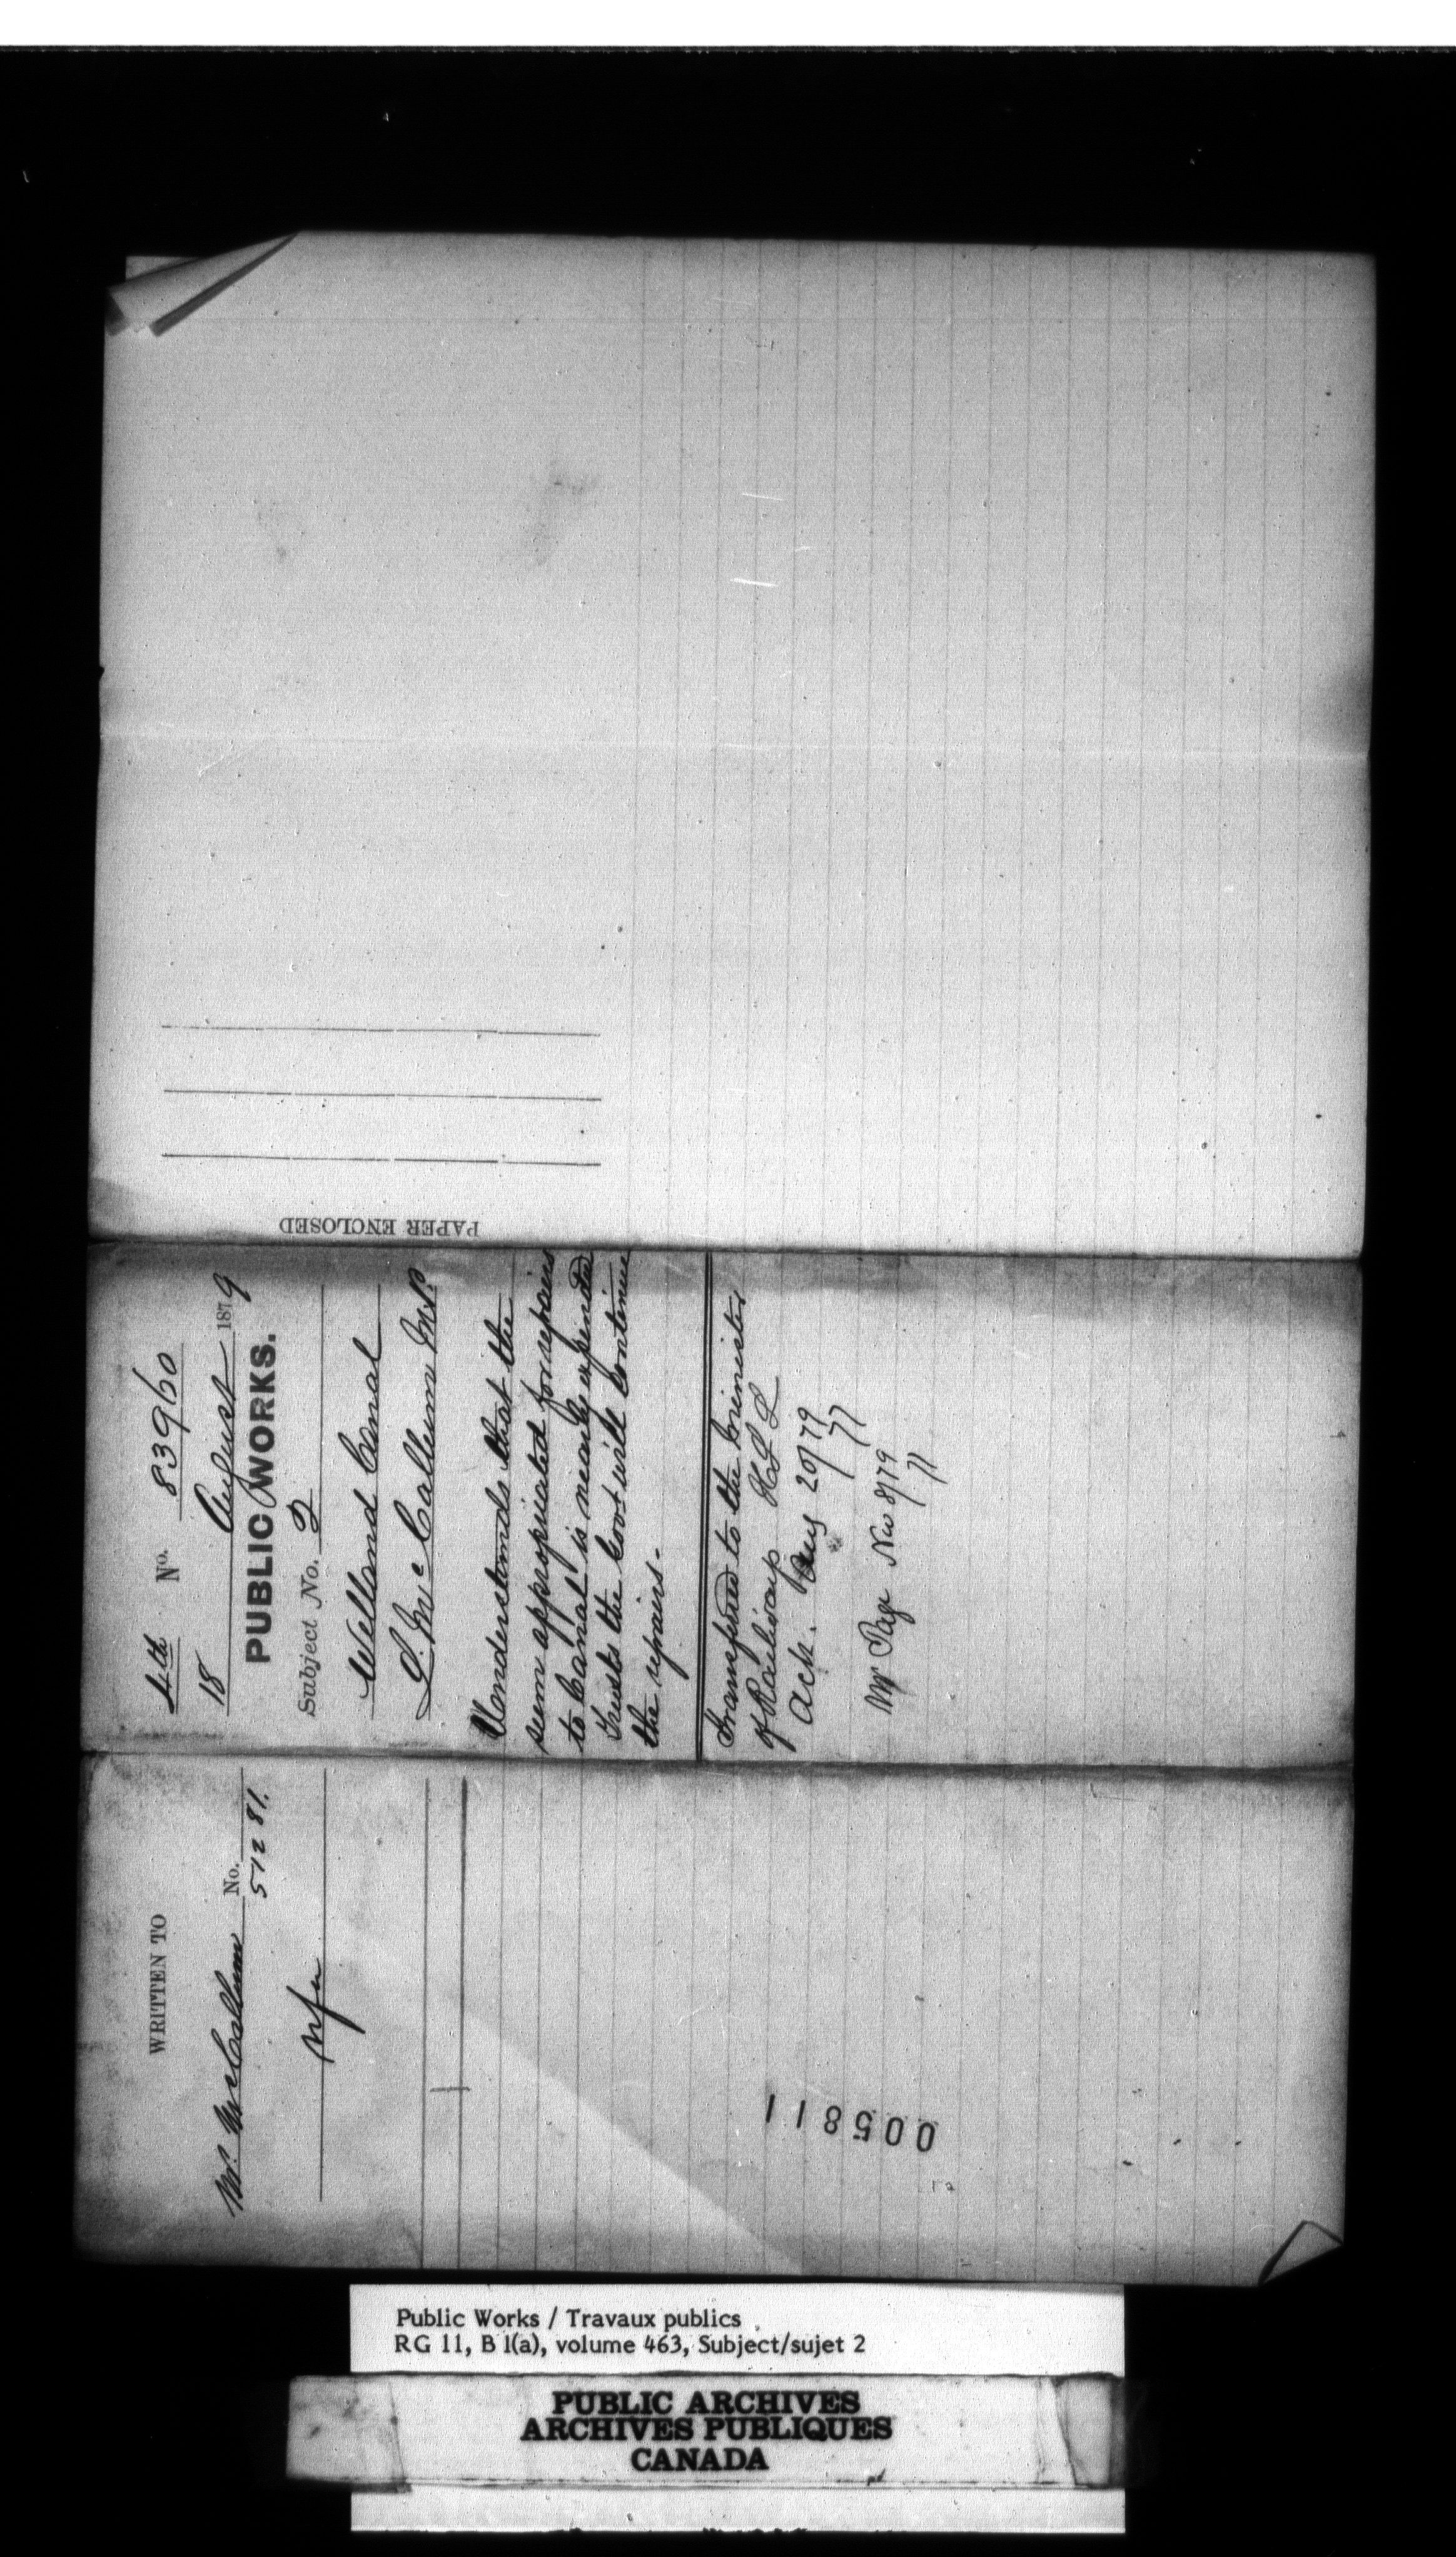 PAPER ENCLOSED
4th No. 83960
18 August 1879
PUBLIC WORKS.
Subject No. 2
Welland Canal
L. McCallum M.P.
Understands that the
sum appropriated for repairs
to Canal is nearly expended
Trusts the Govt will continue
the repairs.
Transferred to the Minister
of Railways
Ack. Aug 20/79
77
Mr Page Nov 8/79
77
WRITTEN TO
Mr McCallum No.
51281.
005811
Public Works / Travaux publics
RG 11, B 1(a), volume 463, Subject/sujet 2
PUBLIC ARCHIVES
ARCHIVES PUBLIQUES
CANADA